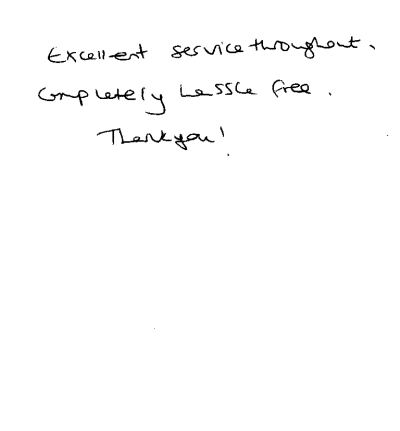 Excellent service throughout.
Completely hassle free.
Thankyou!